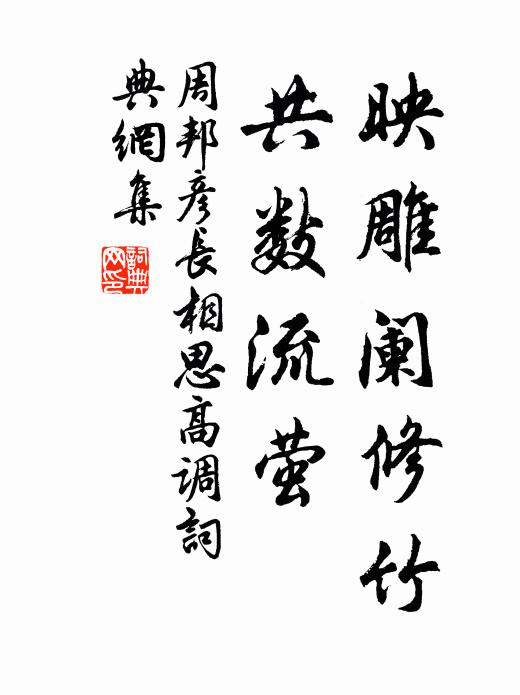 映雕阑修竹
共数流萤
周邦彦長相思高調詞
典網集
詞典
网印